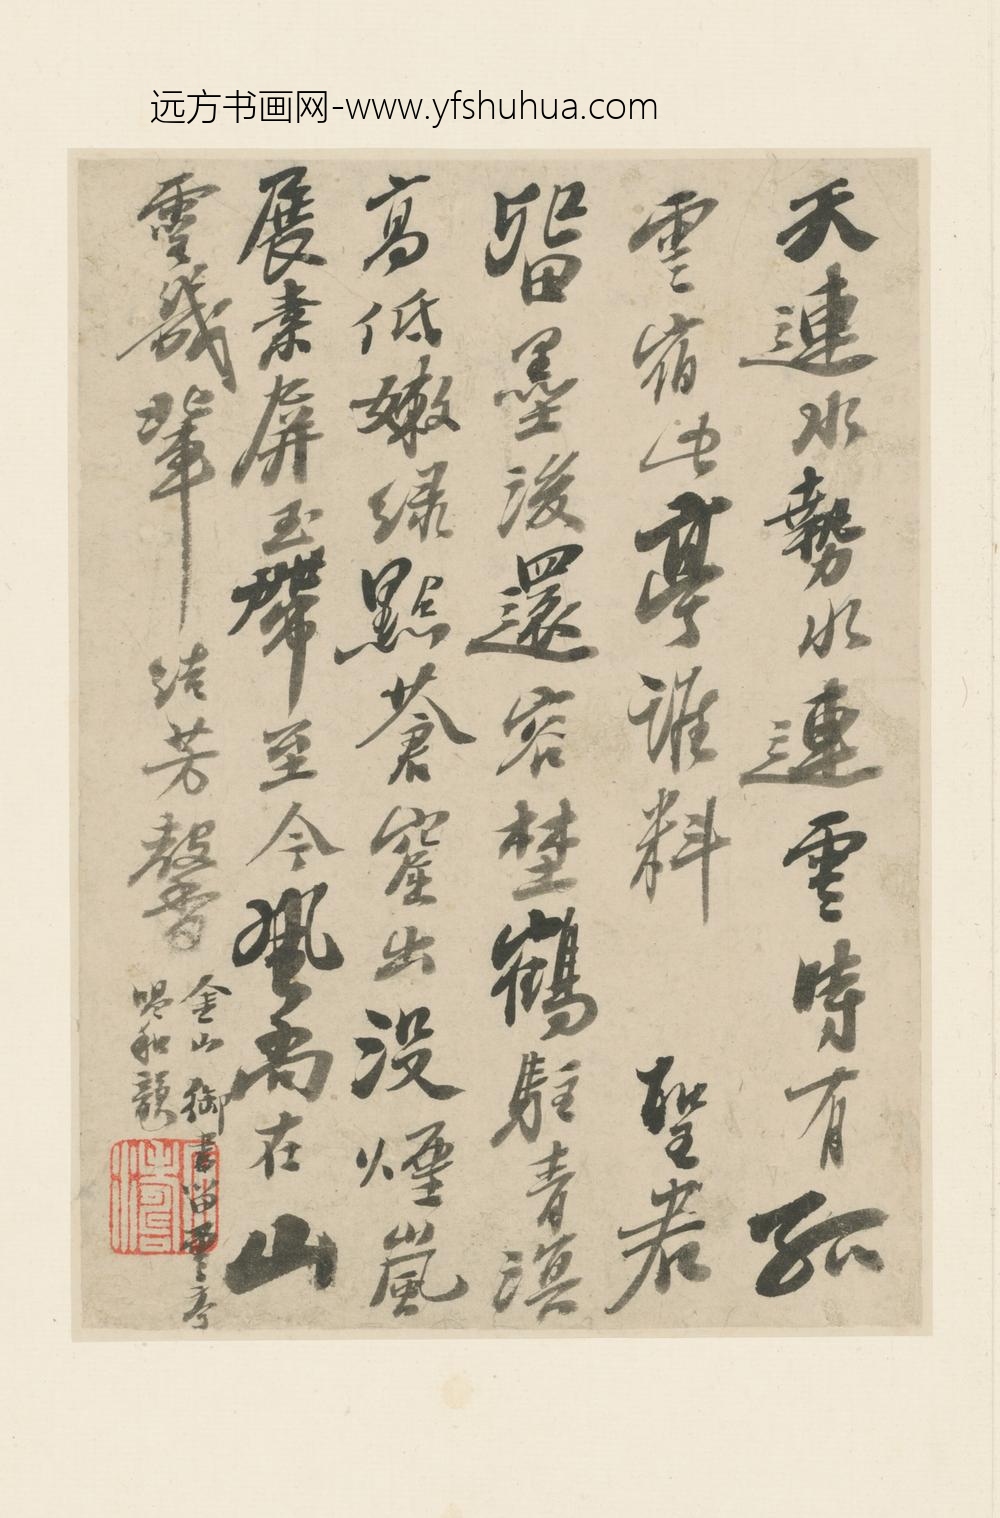 远方书画网-www.yfshuhua.com
天連水勢水連雲時有孤
雲宿此亭誰料 聖君
留墨後還容埜鶴駐青溟
高低嫩綠點蒼窪出沒煙嵐
展素屏玉帶至今風尚在山
靈幾輩結芳馨
金山御書留雲亭
恭和韻